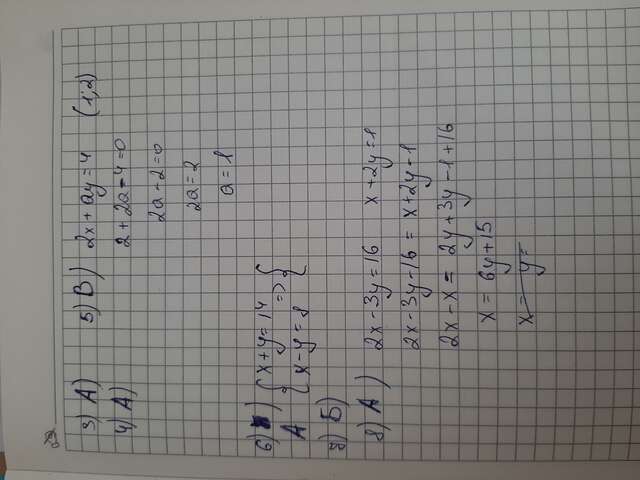 3) А)
4) А)
5) В) 2x + ay = 4 (1; 2)
2 + 2a - 4 = 0
2a - 2 = 0
2a = 2
a = 1
6) { x + y = 14 => {
А { x - y = 8
7) Б)
8) А) 2x - 3y = 16 x + 2y = 1
2x - 3y - 16 = x + 2y - 1
2x - x = 2y + 3y - 1 + 16
x = 6y + 15
x = y =